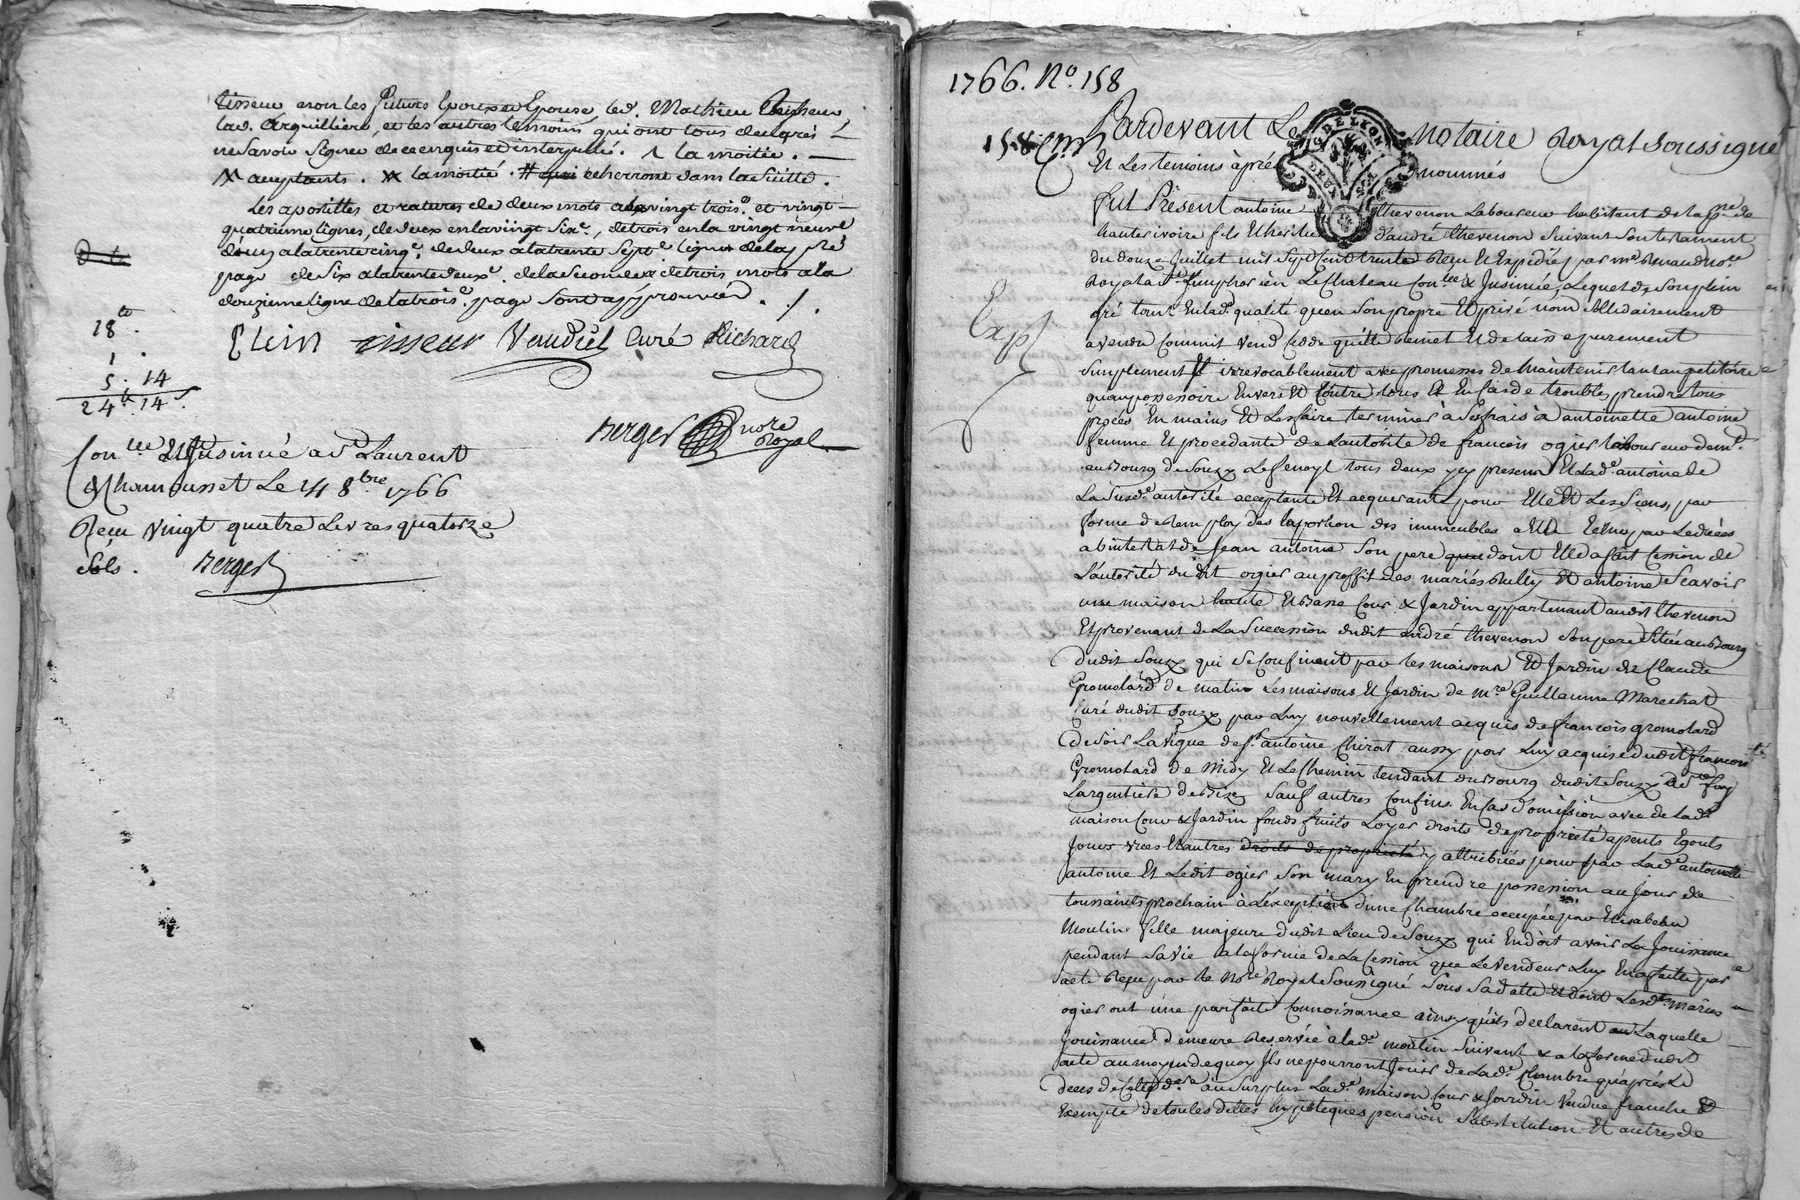 tisseur avoir les futurs Epoux et Epouse led. Mathieu
lad. Arguilliere, et les autres temoins qui ont tous
ne savoir signer de ce enquis et interpellé. la moitie.
la moitié. qui echerront dans la suitte.
Les apostilles et ratures de deux mots a la vingt trois.e et vingt
quatrieme lignes, de deux en la vingt six.e, de trois en la vingt neuve
a la trente cinq.e de deux a la trente sept.e ligne de la p.re
page de six a la trente deux.e de la seconde et de trois mots a la
douzieme ligne de la trois.e page sont approuvées.
18
1
5. 14
24 . 14
tisseur Vendiel Curé Richard
Berger no.re Royal
Con.lle Et Insinué a S.t Laurent
de Chamousset Le 14 8.bre 1766
Reçu vingt quatre Livres quatorze
sols. Berger
1766. N.o 158
158 Pardevant Le Notaire Royal Soussigné
Et Les temoins après nommés
fut Présent antoine thevenon Laboureur habitant de la p.sse de
hauterivoire fils Et heritier d'andré thevenon suivant son testament
du douze Juillet mil Sept Cent trente Reçu Et Expedié par m.e Renaud no.re
Royal a S.t Simphorien Le Chateau Con.llé & Insinué, Lequel de son plein
gré tant En lad. qualité qu'en son propre Et privé nom solidairement
Exp.
a vendu Commit vend Cedde quitte Remet Et delaisse purement
simplement Et irrevocablement avec promesses de maintenir tant au petitoire
qu'au possessoire Envers Et Contre tous Et En Cas de troubles prendre tous
procés En mains Et Les faire terminer a Ses frais à antoinette antoine
femme Et procedante de L'autorité de francois ogier Laboureur dem.t
au Bourg de Souzy Lefenoyl tous deux yey presens Et Lad. antoine de
La Susd. autorité acceptante Et acquerante pour Elle Et Les Siens, par
forme de Remploy des La portion des immeubles a Elle Echus par Le décés
abintestat de Jean antoine son pere dont Elle a fait Cession de
L'autorité dudit ogier au proffit des mariés Rully Et antoine Scavoir
une maison haute Et Basse Cour & Jardin appartenant audit thevenon
Et provenant de La Succession dudit andré thevenon son pere Située au Bourg
dudit Souzy qui Se Confinent par les maisons Et Jardin de Claude
Gromolard de matin Les maisons Et Jardin de m.re Guillaume Marechal
Curé dudit Souzy par Luy nouvellement acquis de francois gromolard
de soir La vigne de S.r antoine Chirat aussy par Luy acquise dudit francois
Gromolard de Midy Et Le Chemin tendant du Bourg dudit Souzy a S.te foy
Largentiere de Bize Sauf autres Confins En Cas d'omission avec de Lad.
maison Cour & Jardin fonds fruits Loyer droits de proprieté apents Egouts
Jours vües Et autres droits de proprieté y attribués pour par Lad. antoinette
antoine Et Ledit ogier Son mary En prendre possession au Jour de
toussaints prochain à L'exception d'une Chambre occupée par Elisabeau
Moulin fille majeure dudit Lieu de Souzy qui En doit avoir La Jouissance
pendant Sa vie a la forme de La Cession que Le vendeur Luy En a faitte par
acte Reçu par le No.re Royal Soussigné Sous Sa datte Et dont Lesd. mariés
ogier ont une parfaite Connoissance ainsy qu'ils declarent Laquelle
Jouissance demeure Reservée à lad. moulin Suivant & a la forme dudit
acte au moyen de quoy Ils ne pourront Jouir de Lad. Chambre qu'après Le
deces de Cette d.re au Surplus Lad. maison Cour & Jardin vendue franche Et
Exempte de toutes dettes hypoteques pension Substitution Et autres de